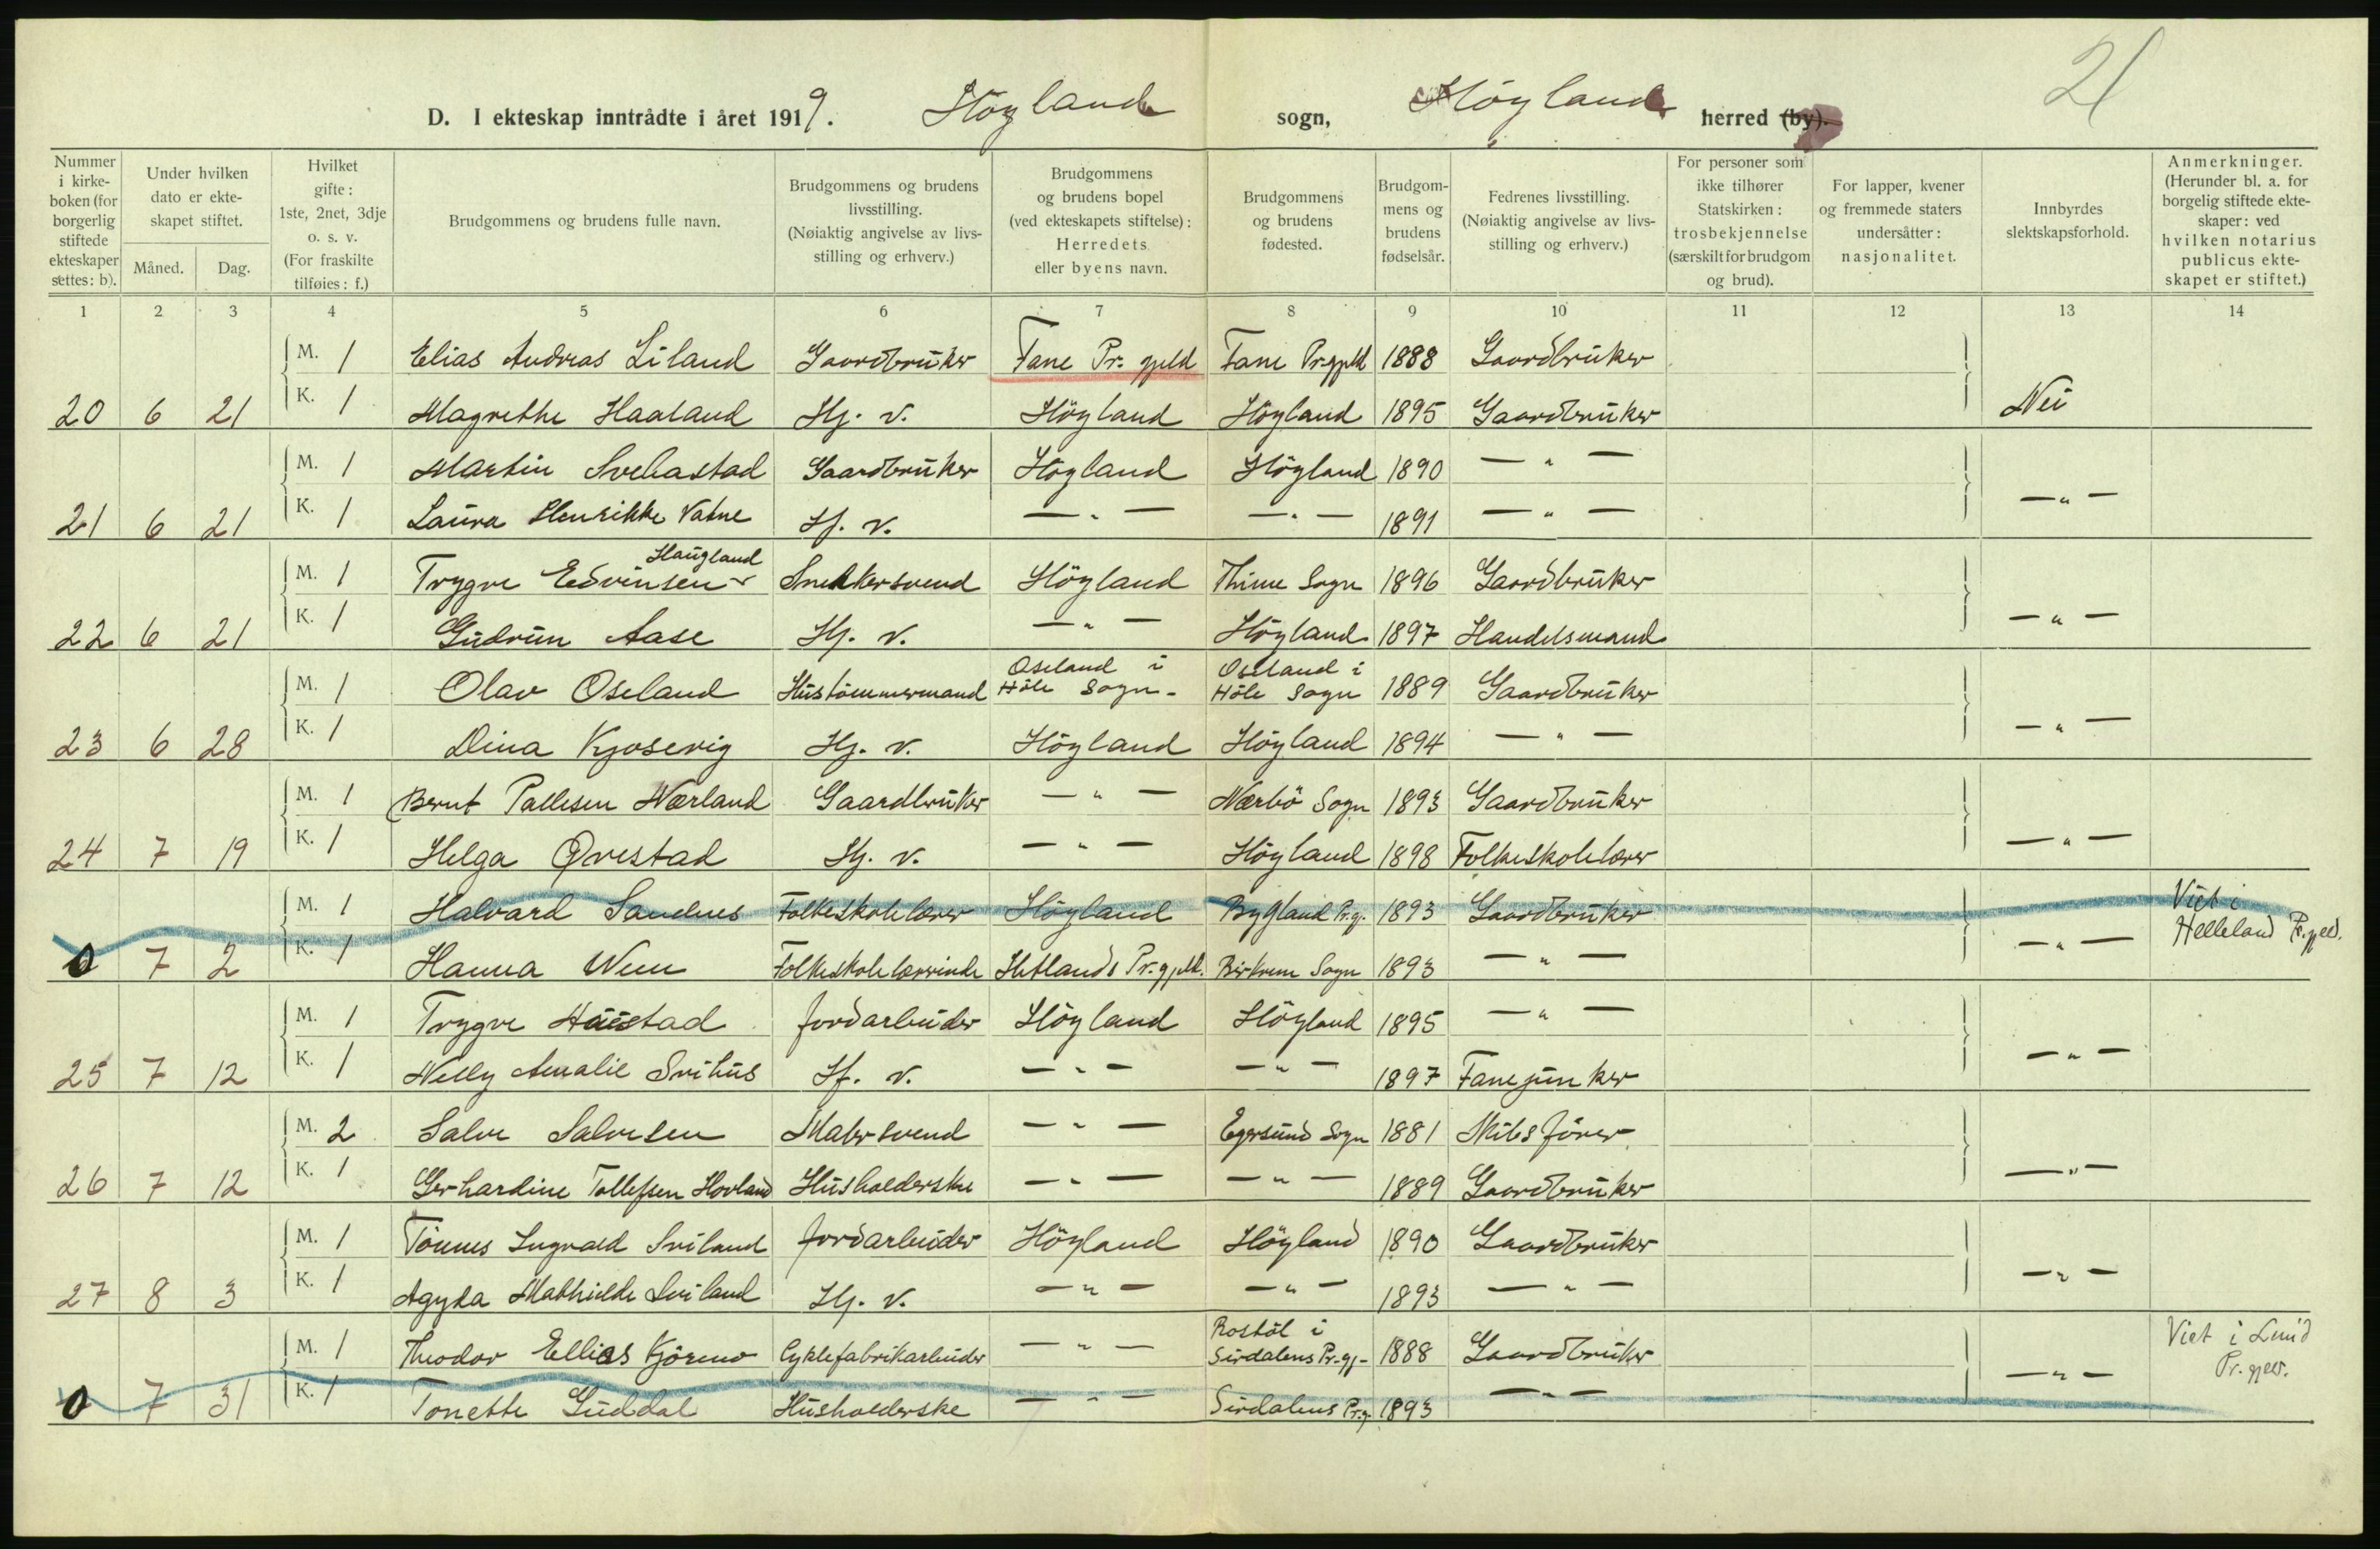 21
D. I ekteskap inntrådte i året 1919. Höyland sogn, Höyland herred (by).
Nummer i kirkeboken (for borgerlig stiftede ekteskaper settes: b).
Under hvilken dato er ekteskapet stiftet.
Måned. Dag.
Hvilket gifte: 1ste, 2net, 3dje o. s. v. (For fraskilte tilføies: f.)
Brudgommens og brudens fulle navn.
Brudgommens og brudens livsstilling. (Nøiaktig angivelse av livsstilling og erhverv.)
Brudgommens og brudens bopel (ved ekteskapets stiftelse): Herredets eller byens navn.
Brudgommens og brudens fødested.
Brudgommens og brudens fødselsår.
Fedrenes livsstilling. (Nøiaktig angivelse av livsstilling og erhverv.)
For personer som ikke tilhører Statskirken: trosbekjennelse (særskilt for brudgom og brud).
For lapper, kvener og fremmede staters undersåtter: nasjonalitet.
Innbyrdes slektskapsforhold.
Anmerkninger. (Herunder bl. a. for borgelig stiftede ekteskaper: ved hvilken notarius publicus ekteskapet er stiftet.)
1 2 3 4 5 6 7 8 9 10 11 12 13 14
M. 1 Elias Andreas Liland Gaardbruker Fane Pr. gjeld Fane Pr.gjeld 1888 Gaardbruker
20 6 21 K. 1 Magrethe Haaland Hj. v. Höyland Höyland 1895 Gaardbruker Nei
M. 1 Martin Svebastad Gaardbruker Höyland Höyland 1890 — " —
21 6 21 K. 1 Laura Henrikke Vatne Hj. v. — " — — " — 1891 — " — — " —
M. 1 Trygve Edvinsen Haugland Snekkersvend Höyland Thime Sogn 1896 Gaardbruker
22 6 21 K. 1 Gudrun Aase Hj. v. — " — Höyland 1897 Handelsmand — " —
M. 1 Olav Oseland Hustömmermand Oseland i Höle Sogn - Oseland i Höle Sogn 1889 Gaardbruker
23 6 28 K. 1 Dina Kjosevig Hj. v. Höyland Höyland 1894 — " — — " —
M. 1 Bernt Pallesen Nærland Gaardbruker — " — Nærbö Sogn 1893 Gaardbruker
24 7 19 K. 1 Helga Qvestad Hj. v. — " — Höyland 1898 Folkeskolelærer — " —
M. 1 Halvard Sandnes Folkeskolelærer Höyland Bygland Pr.g. 1893 Gaardbruker Viet i
0 7 2 K. 1 Hanna Folkeskolelærerinde Hetlands Pr. gjeld. Birkrem Sogn 1893 — " — — " — Helleland Pr.gjeld.
M. 1 Trygve Jordarbeider Höyland Höyland 1895 — " —
25 7 12 K. 1 Nelly Amalie Svihus Hj. v. — " — — " — 1897 Fanejunker — " —
M. 2 Salve Salvesen Malersvend — " — Egersund Sogn 1881 Skibsförer
26 7 12 K. 1 Gerhardine Tollefsen Hovland Husholderske — " — — " — 1889 Gaardbruker — " —
M. 1 Tönnes Ingvald Sviland Jordarbeider Höyland Höyland 1890 Gaardbruker
27 8 3 K. 1 Agyda Mathilde Sviland Hj. v. — " — — " — 1893 — " — — " —
M. 1 Theodor Ellias Kjörmo Cyklefabrikarbeider — " — Rostöl i Sirdalens Pr. gj- 1888 Gaardbruker Viet i Lund
0 7 31 K. 1 Tonette Guddal Husholderske — " — Sirdalens Pr.g. 1893 — " — — " — Pr. gjeld.